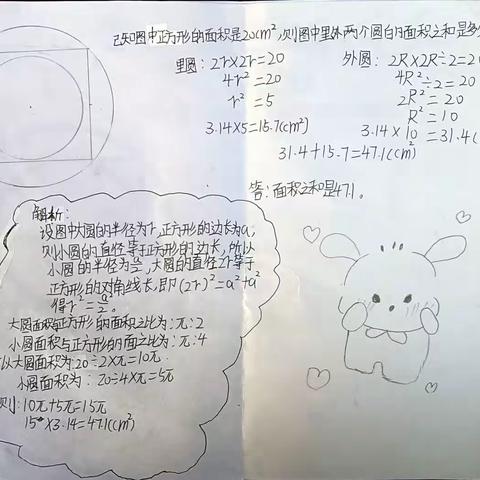 已知图中正方形的面积是20cm²,则图中里外两个圆的面积之和是多
里圆: 2r×2r=20
4r²=20
r²=5
3.14×5=15.7(cm²)
外圆: 2R×2R÷2=20
4R²÷2=20
2R²=20
R²=10
3.14×10=31.4(
31.4+15.7=47.1(cm²)
答:面积之和是47.1。
解析:
设图中大圆的半径为r,正方形的边长为a,
则小圆的直径等于正方形的边长,所以
小圆的半径为a/2,大圆的直径2r等于
正方形的对角线长,即(2r)²=a²+a²
得r²=a²/2。
大圆面积与正方形的面积之比为:π:2
小圆面积与正方形的面之比为:π:4
以大圆面积为:20÷2×π=10π
小圆面积为: 20÷4×π=5π
则小:10π+5π=15π
15×3.14=47.1(cm²)